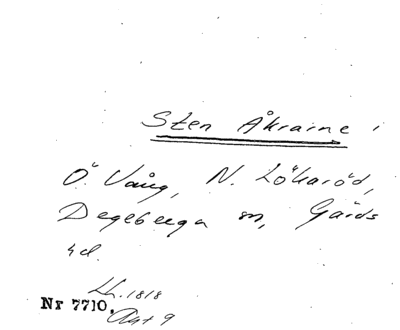 Sten Åkrarne i
Ö. Vång, N. Lökaröd,
Degeberga sn, Gärds
hd.
Lh. 1818
Nr 7710. Akt 9